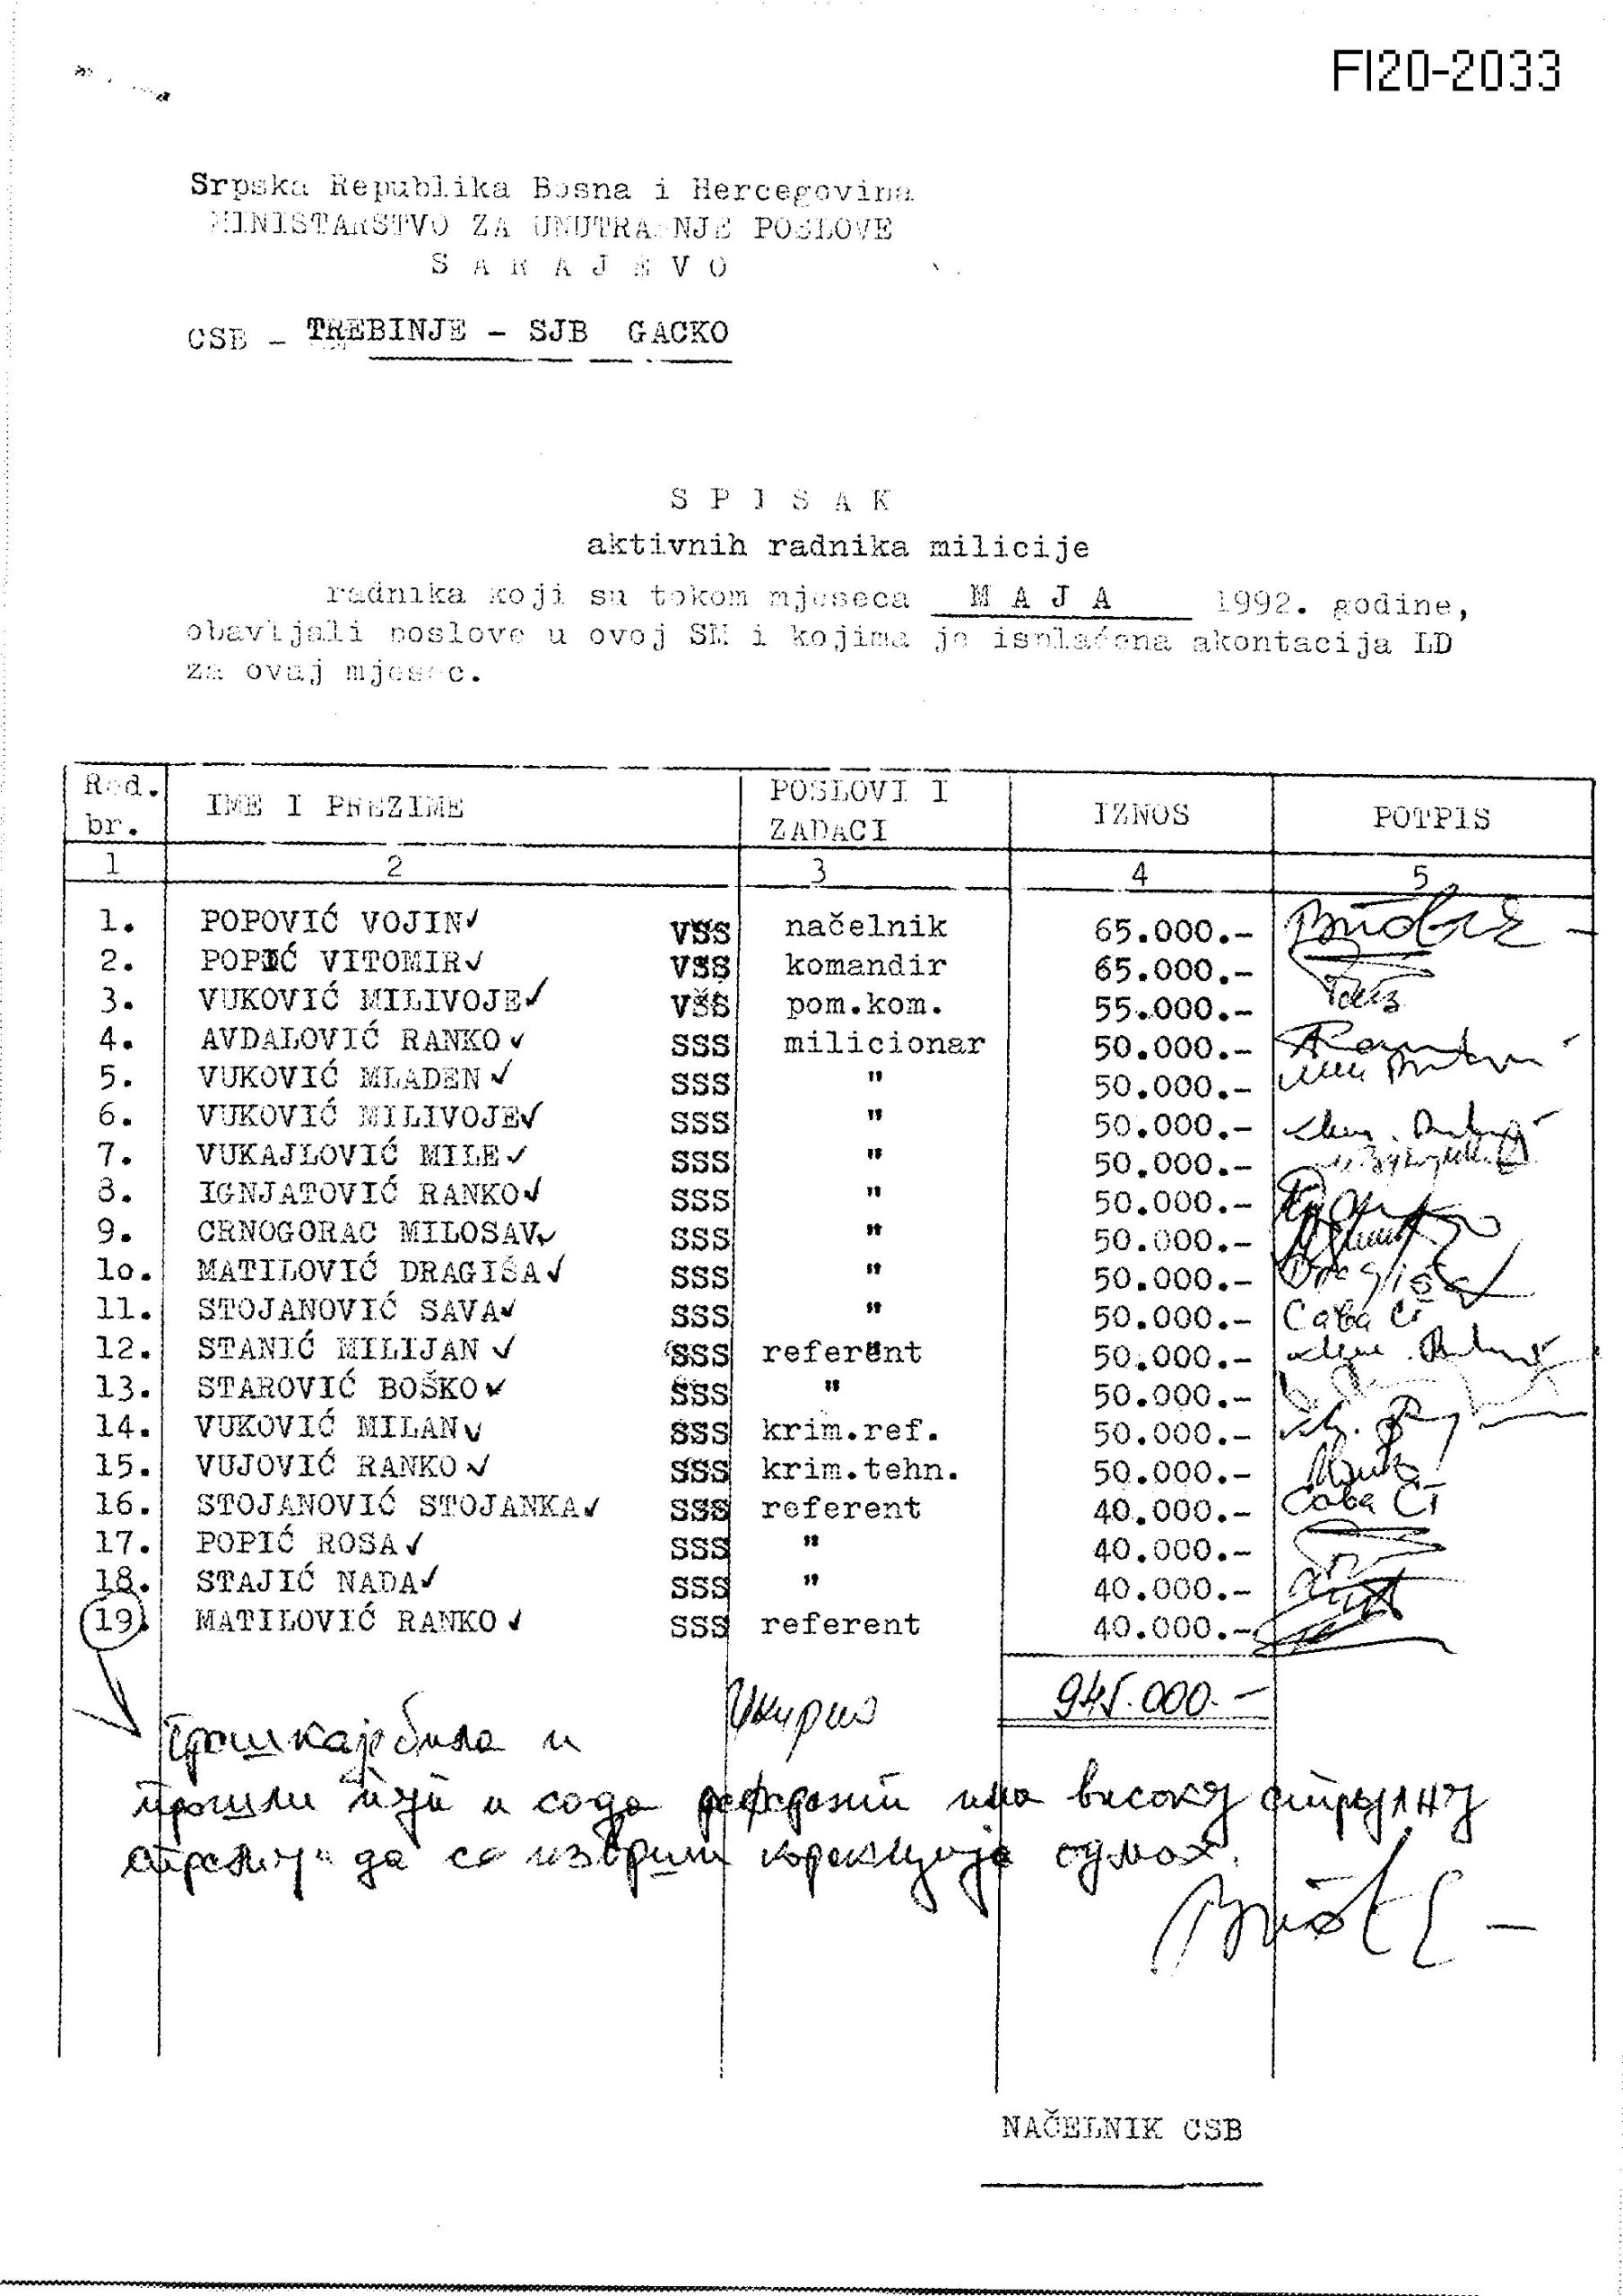 FI20-2033
Srpska Republika Bosna i Hercegovina
MINISTARSTVO ZA UNUTRAŠNJE POSLOVE
S A R A J E V O
CSB - TREBINJE - SJB GACKO
S P I S A K
aktivnih radnika milicije
radnika koji su tokom mjeseca M A J A 1992. godine,
obavljali poslove u ovoj SM i kojima je isplaćena akontacija LD
za ovaj mjesec.
Red. br. IME I PREZIME POSLOVI I ZADACI IZNOS POTPIS
1 2 3 4 5
1. POPOVIĆ VOJIN✓ VŠS načelnik 65.000.-
2. POPIĆ VITOMIR✓ VSS komandir 65.000.-
3. VUKOVIĆ MILIVOJE✓ VŠS pom.kom. 55.000.-
4. AVDALOVIĆ RANKO✓ SSS milicionar 50.000.-
5. VUKOVIĆ MLADEN✓ SSS " 50.000.-
6. VUKOVIĆ MILIVOJE✓ SSS " 50.000.-
7. VUKAJLOVIĆ MILE✓ SSS " 50.000.-
8. IGNJATOVIĆ RANKO✓ SSS " 50.000.-
9. CRNOGORAC MILOSAV✓ SSS " 50.000.-
1o. MATILOVIĆ DRAGIŠA✓ SSS " 50.000.- Dragiša
11. STOJANOVIĆ SAVA✓ SSS " 50.000.- Сава Ст
12. STANIĆ MILIJAN✓ SSS referent 50.000.-
13. STAROVIĆ BOŠKO✓ SSS " 50.000.-
14. VUKOVIĆ MILAN✓ SSS krim.ref. 50.000.-
15. VUJOVIĆ RANKO✓ SSS krim.tehn. 50.000.-
16. STOJANOVIĆ STOJANKA✓ SSS referent 40.000.- Сава Ст
17. POPIĆ ROSA✓ SSS " 40.000.-
18. STAJIĆ NADA✓ SSS " 40.000.-
19. MATILOVIĆ RANKO✓ SSS referent 40.000.-
Укупно 945.000.-
Грешка је била и
прошли пут и сада референт има високу стручну
спрему да се изврши корекција одмах.
NAČELNIK CSB